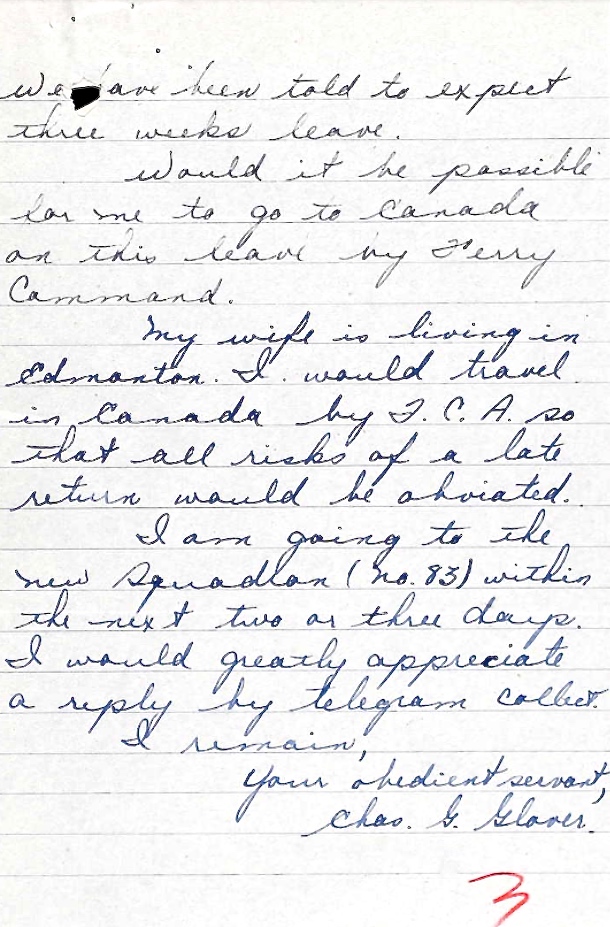 We have been told to expect
three weeks leave.
Would it be possible
for me to go to Canada
on this leave by Ferry
Command.
My wife is living in
Edmonton. I would travel
in Canada by T. C. A. so
that all risks of a late
return would be obviated.
I am going to the
new Squadron (No. 83) within
the next two or three days.
I would greatly appreciate
a reply by telegram collect.
I remain,
Your obedient servant,
Chas. G. Glover.
3